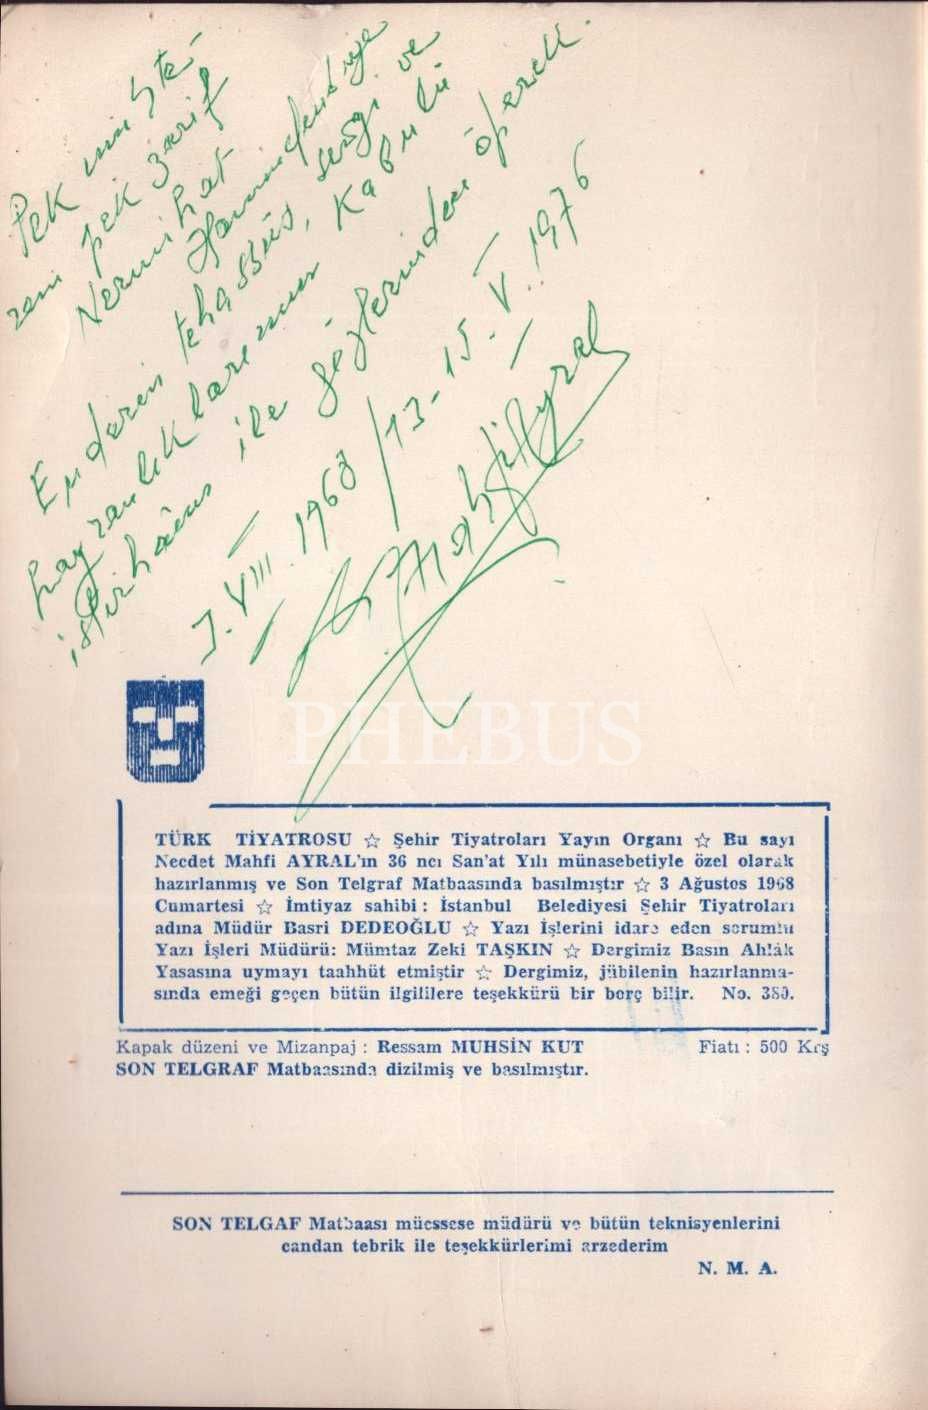 Pek müşte-
rem pek zarif
Nermihat
Hanımefendiye
En derin tehassüs, sevgi ve
hayranlıklarımın kabulü
istirhâmı ile gözlerinden öperek.
3. VIII. 1968 / 13-15. V. 1976
N. Mahfi Ayral
PHEBUS
TÜRK TİYATROSU ☆ Şehir Tiyatroları Yayın Organı ☆ Bu sayı
Necdet Mahfi AYRAL'ın 36 ncı San'at Yılı münasebetiyle özel olarak
hazırlanmış ve Son Telgraf Matbaasında basılmıştır ☆ 3 Ağustos 1968
Cumartesi ☆ İmtiyaz sahibi : İstanbul Belediyesi Şehir Tiyatroları
adına Müdür Basri DEDEOĞLU ☆ Yazı İşlerini idare eden sorumlu
Yazı İşleri Müdürü: Mümtaz Zeki TAŞKIN ☆ Dergimiz Basın Ahlâk
Yasasına uymayı taahhüt etmiştir ☆ Dergimiz, jübilenin hazırlanma-
sında emeği geçen bütün ilgililere teşekkürü bir borç bilir. No. 380.
Kapak düzeni ve Mizanpaj : Ressam MUHSİN KUT Fiatı : 500 Krş
SON TELGRAF Matbaasında dizilmiş ve basılmıştır.
SON TELGAF Matbaası müessese müdürü ve bütün teknisyenlerini
candan tebrik ile teşekkürlerimi arzederim
N. M. A.